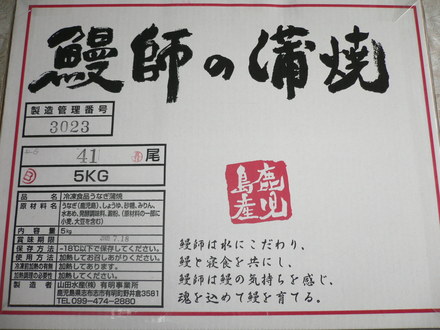 鰻師の蒲焼
製造管理番号
3023
41 尾
5KG
鹿児
島産
品名 冷凍食品うなぎ蒲焼
原材料名 うなぎ(鹿児島)、しょうゆ、砂糖、みりん、
水あめ、発酵調味料、澱粉、(原材料の一部に
小麦、大豆を含む)
内容量 5kg
賞味期限 7.18
保存方法 -18℃以下で保存してください。
使用方法 加熱してお召しあがりください。
凍結前加熱の有無 加熱してあります。
加熱調理の必要性 加熱してください。
製造者 山田水産(株) 有明事業所
鹿児島県志布志市有明町野井倉3581
TEL099-474-2880
鰻師は水にこだわり、
鰻と寝食を共にし、
鰻師は鰻の気持ちを感じ、
魂を込めて鰻を育てる。